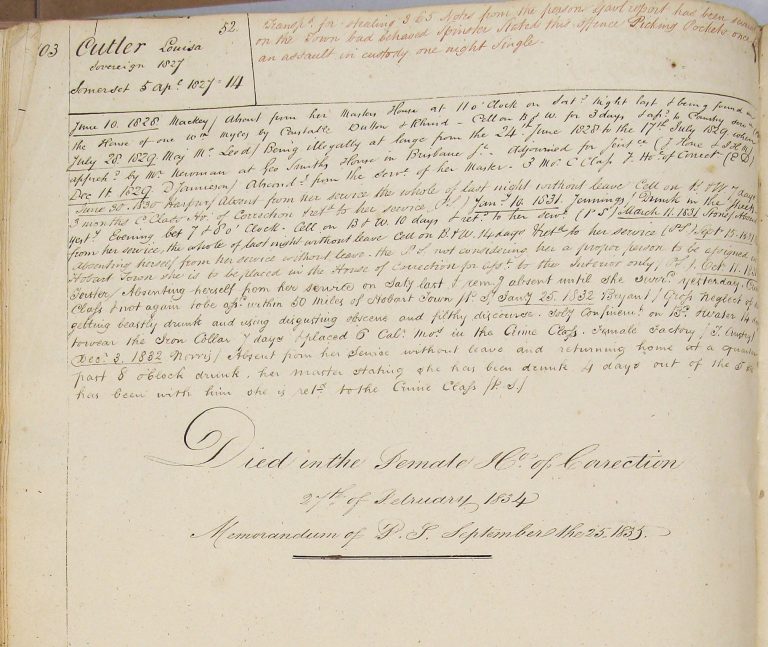 03
Cutler Louisa 52.
Sovereign 1827
Somerset 5 apl. 1827 = 14
Transpd. for stealing 3 £5 Notes from the person Gaol report has been
on the Town bad behaved Spinster Stated this offence Picking Pockets once
an assault in custody one night Single.
June 10. 1828 Mackey / Absent from her Masters House at 11 o'Clock on Saty. night last & being found in
the House of one Wm. Myles by Constable Dutton & Cell on B & W. for 3 days
July 28. 1829. Mc. Leod / Being illegally at large from the 24th. June 1828 to the 17th July 1829 when
appreh. by Mr. Newman at Geo Smiths House in Brisbane St. - Adjourned for
Dec 14 1829 D Jamieson / Abscondg. from the Serve. of her Master. 3 Mos. C Class F. Ho. of Correct.
June 30. 1830 Harper / Absent from her service the whole of last night without leave Cell on B. & W 7 days
3 months C. Class Ho. of Correction & retd. to her service (P.S) Jany. 10. 1831. Jennings / Drunk in the Streets
yesty. Evening bet 7 & 8 o'Clock. Cell on B & W. 10 days & retd. to her serve. (P S) March 11. 1831 Stone / Absent
from her service, the whole of last night without leave Cell on B & W. 14 days & retd. to her service (P S) Sept 15. 1831
absenting herself from her service without leave. the P.S not considering her a proper person to be assigned in
Hobart Town she is to be placed in the House of Correction for asst. to the Interior only / P.S / Oct 11. 1831
Forster / Absenting herself from her service on Saty last & remg. absent until she surrd. yesterday. Crime
Class & not again to be assd. within 30 Miles of Hobart Town P. S / Jany. 25. 1832 Bryant / Gross Neglect of
getting beastly drunk and using disgusting obscene and filthy discourse. Soly Confinemt. on Bd. & Water 14 days
to wear the Iron Collar 7 days & placed 6 Calr. Mos. in the Crime Class. Female Factory
Decr. 3. 1832 Norris / Absent from her Service without leave and returning home at a quarter
past 8 oClock drunk. her master stating she has been drunk 4 days out of the 5 she
has been with him she is retd. to the Crime Class / P. S /
Died in the Female Ho. of Correction
27th. of February 1834
Memorandum of P. S. September the 25. 1835.